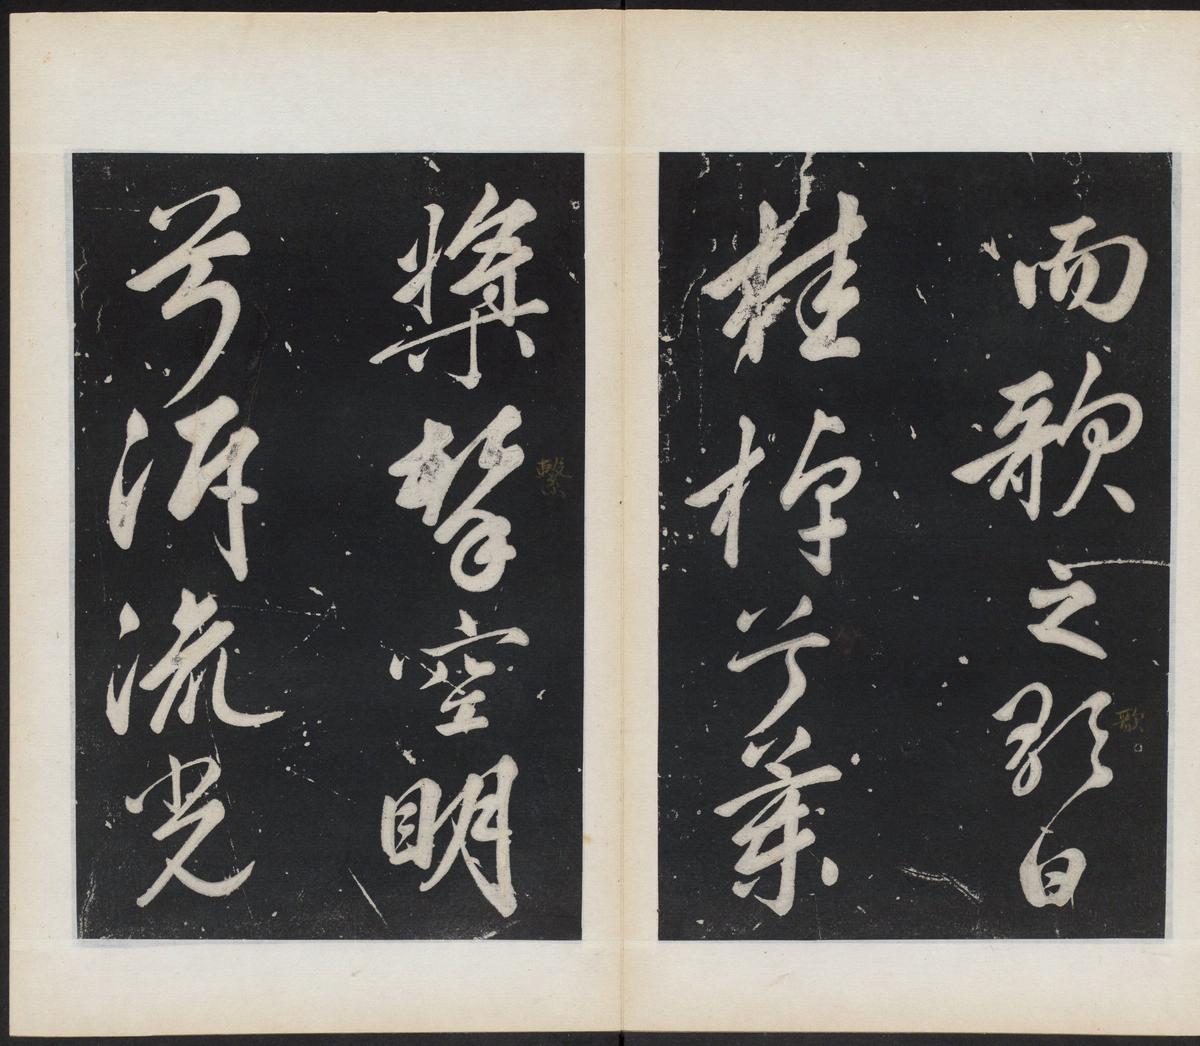 而歌之歌曰
歌
桂棹兮蘭
槳擊空明
繫
兮泝流光